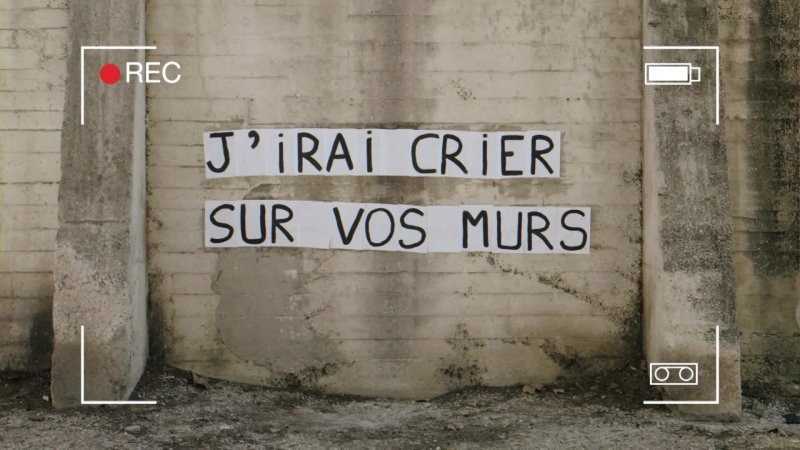 REC
J'iRAi CRiER
SUR VOS MURS